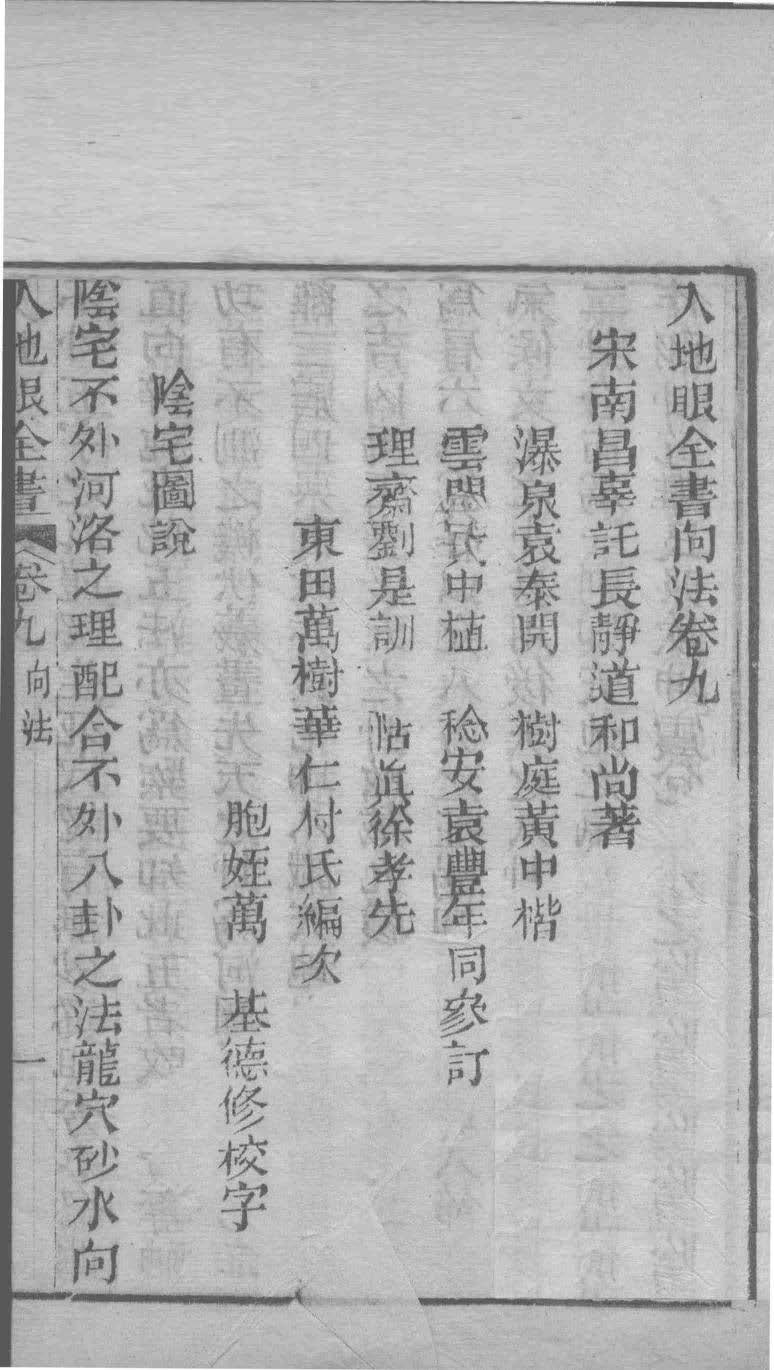 入地眼全書向法卷九
宋南昌辜託長靜道和尚著
瀑泉袁泰開 樹庭黃中楷
雲閒黃中植 稔安袁豐年同參訂
理齋劉是訓 怙眞徐孝先
東田萬樹華仁村氏編次
胞姪萬 基德修校字
陰宅圖說
陰宅不外河洛之理配合不外八卦之法龍穴砂水向
入地眼全書 卷九 向法 一